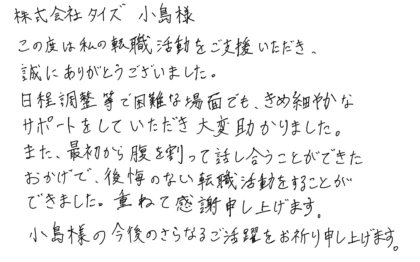 株式会社タイズ 小島様
この度は私の転職活動をご支援いただき、
誠にありがとうございました。
日程調整等で困難な場面でも、きめ細やかな
サポートをしていただき大変助かりました。
また、最初から腹を割って話し合うことができた
おかげで、後悔のない転職活動をすることが
できました。重ねて感謝申し上げます。
小島様の今後のさらなるご活躍をお祈り申し上げます。